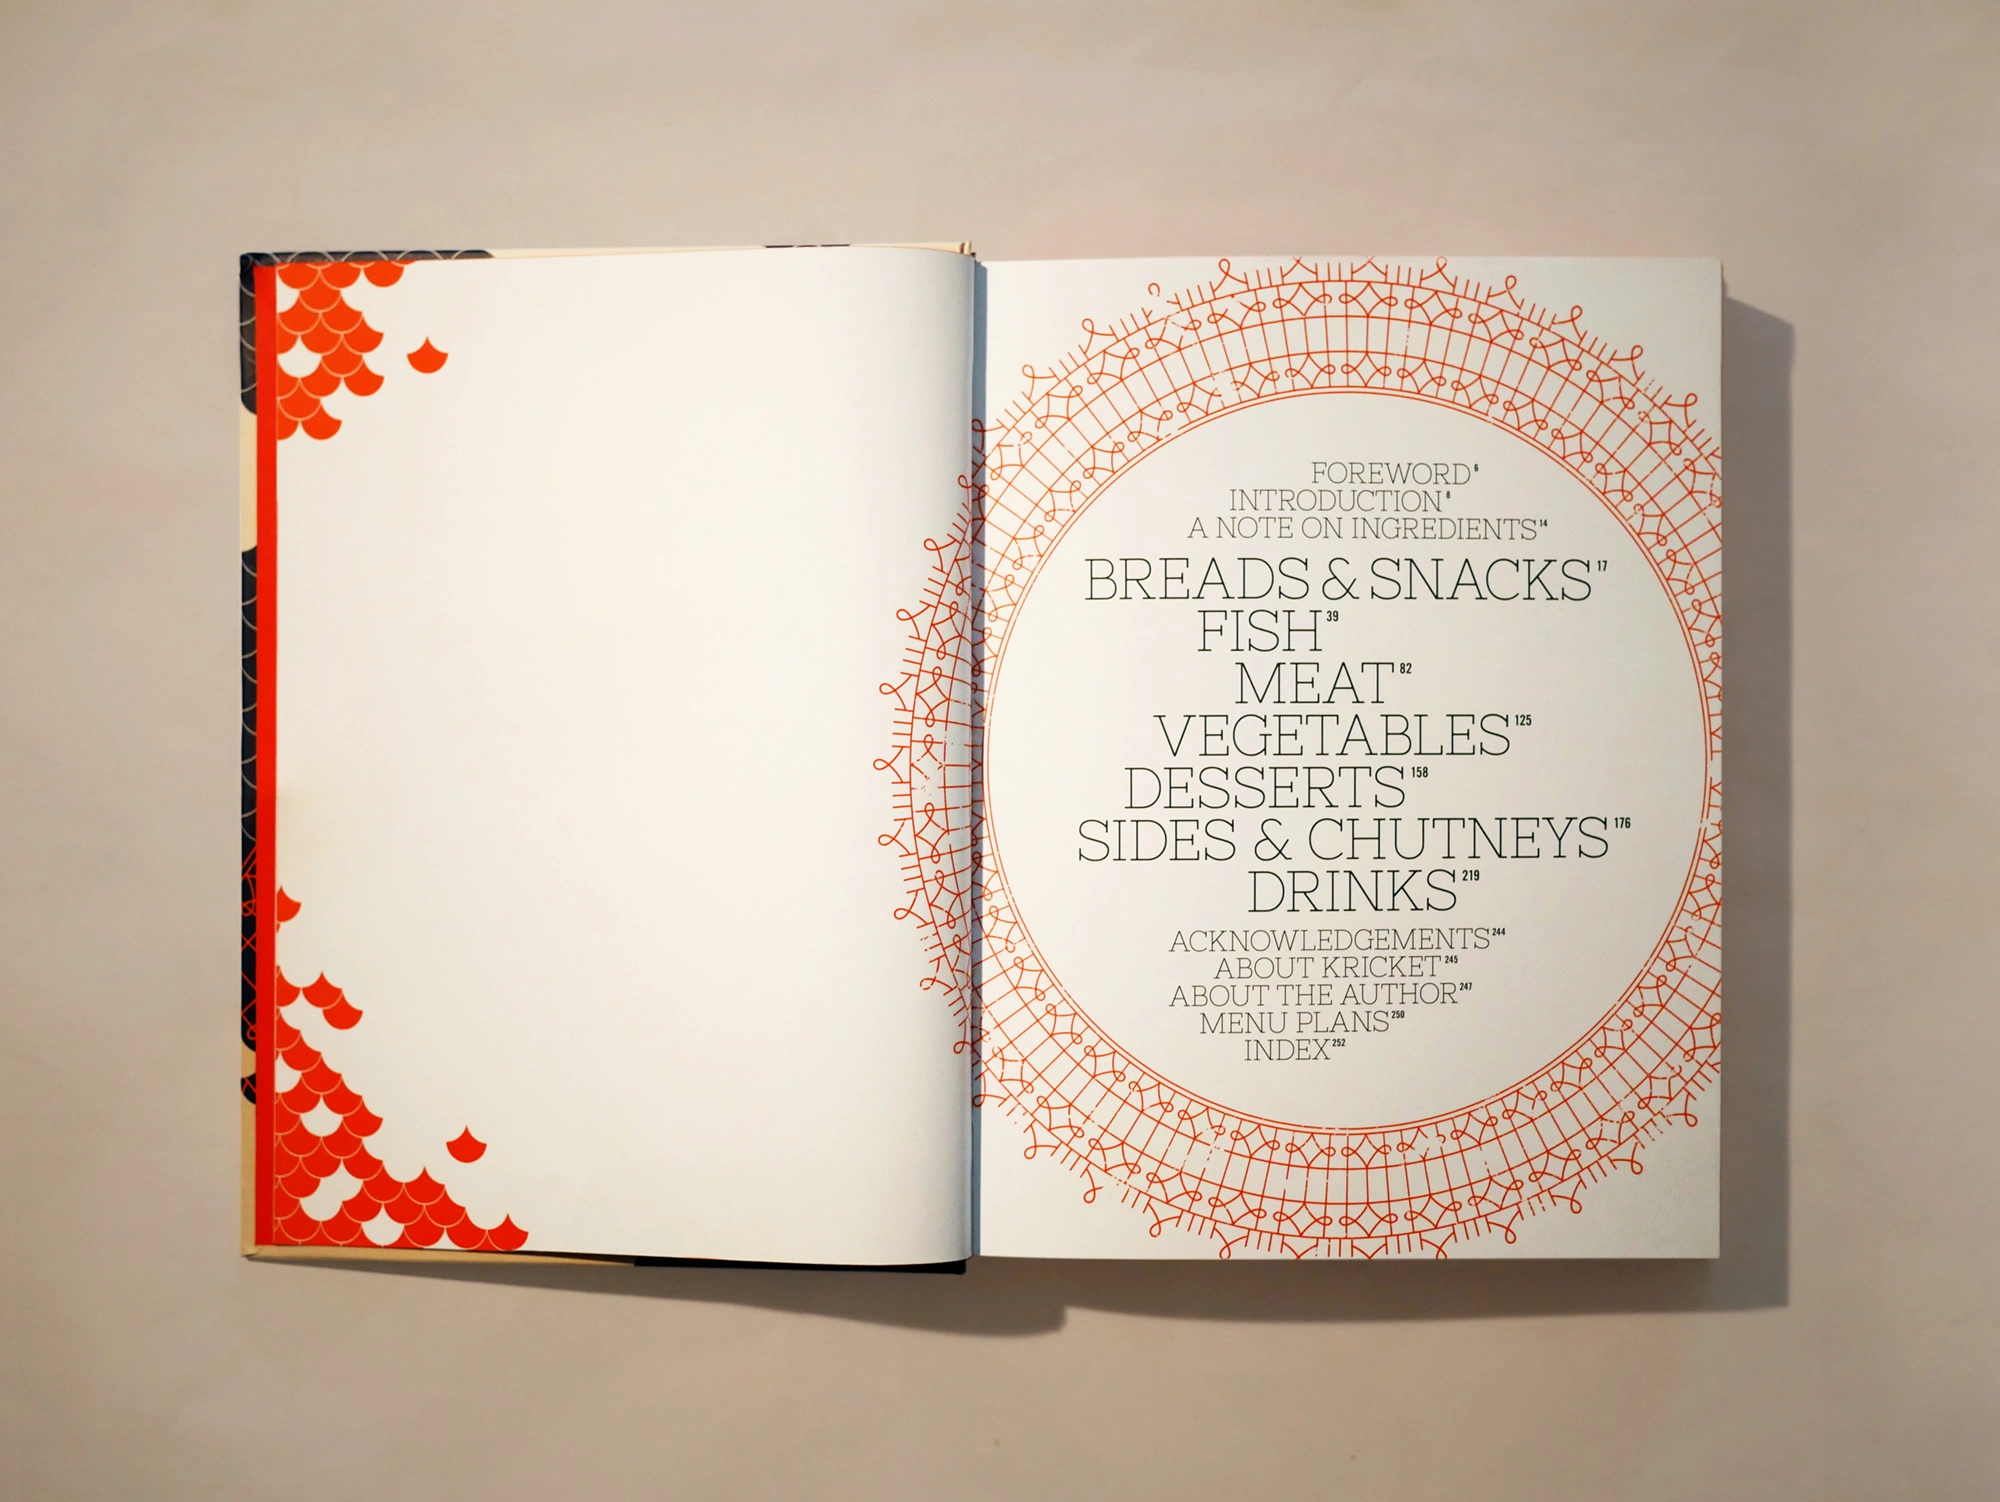 FOREWORD 6
INTRODUCTION 8
A NOTE ON INGREDIENTS 14
BREADS & SNACKS 17
FISH 39
MEAT 82
VEGETABLES 125
DESSERTS 158
SIDES & CHUTNEYS 176
DRINKS 219
ACKNOWLEDGEMENTS 244
ABOUT KRICKET 245
ABOUT THE AUTHOR 247
MENU PLANS 250
INDEX 252